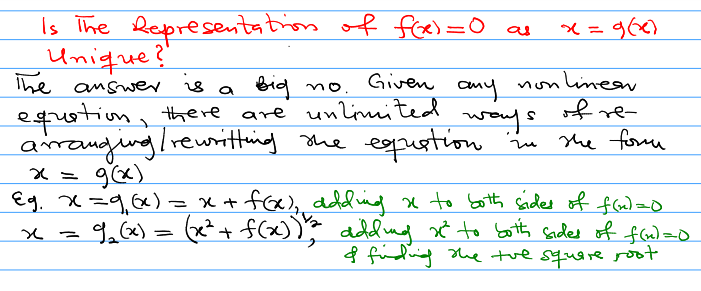 Is The Representation of f(x)=0 as x = g(x)
Unique?
The answer is a big no. Given any nonlinear
equation, there are unlimited ways of re-
arranging/rewritting the equation in the form
x = g(x)
Eg. x = g₁(x) = x + f(x), adding x to both sides of f(x)=0
x = g₂(x) = (x² + f(x))^1/2, adding x² to both sides of f(x)=0
& finding the +ve square root